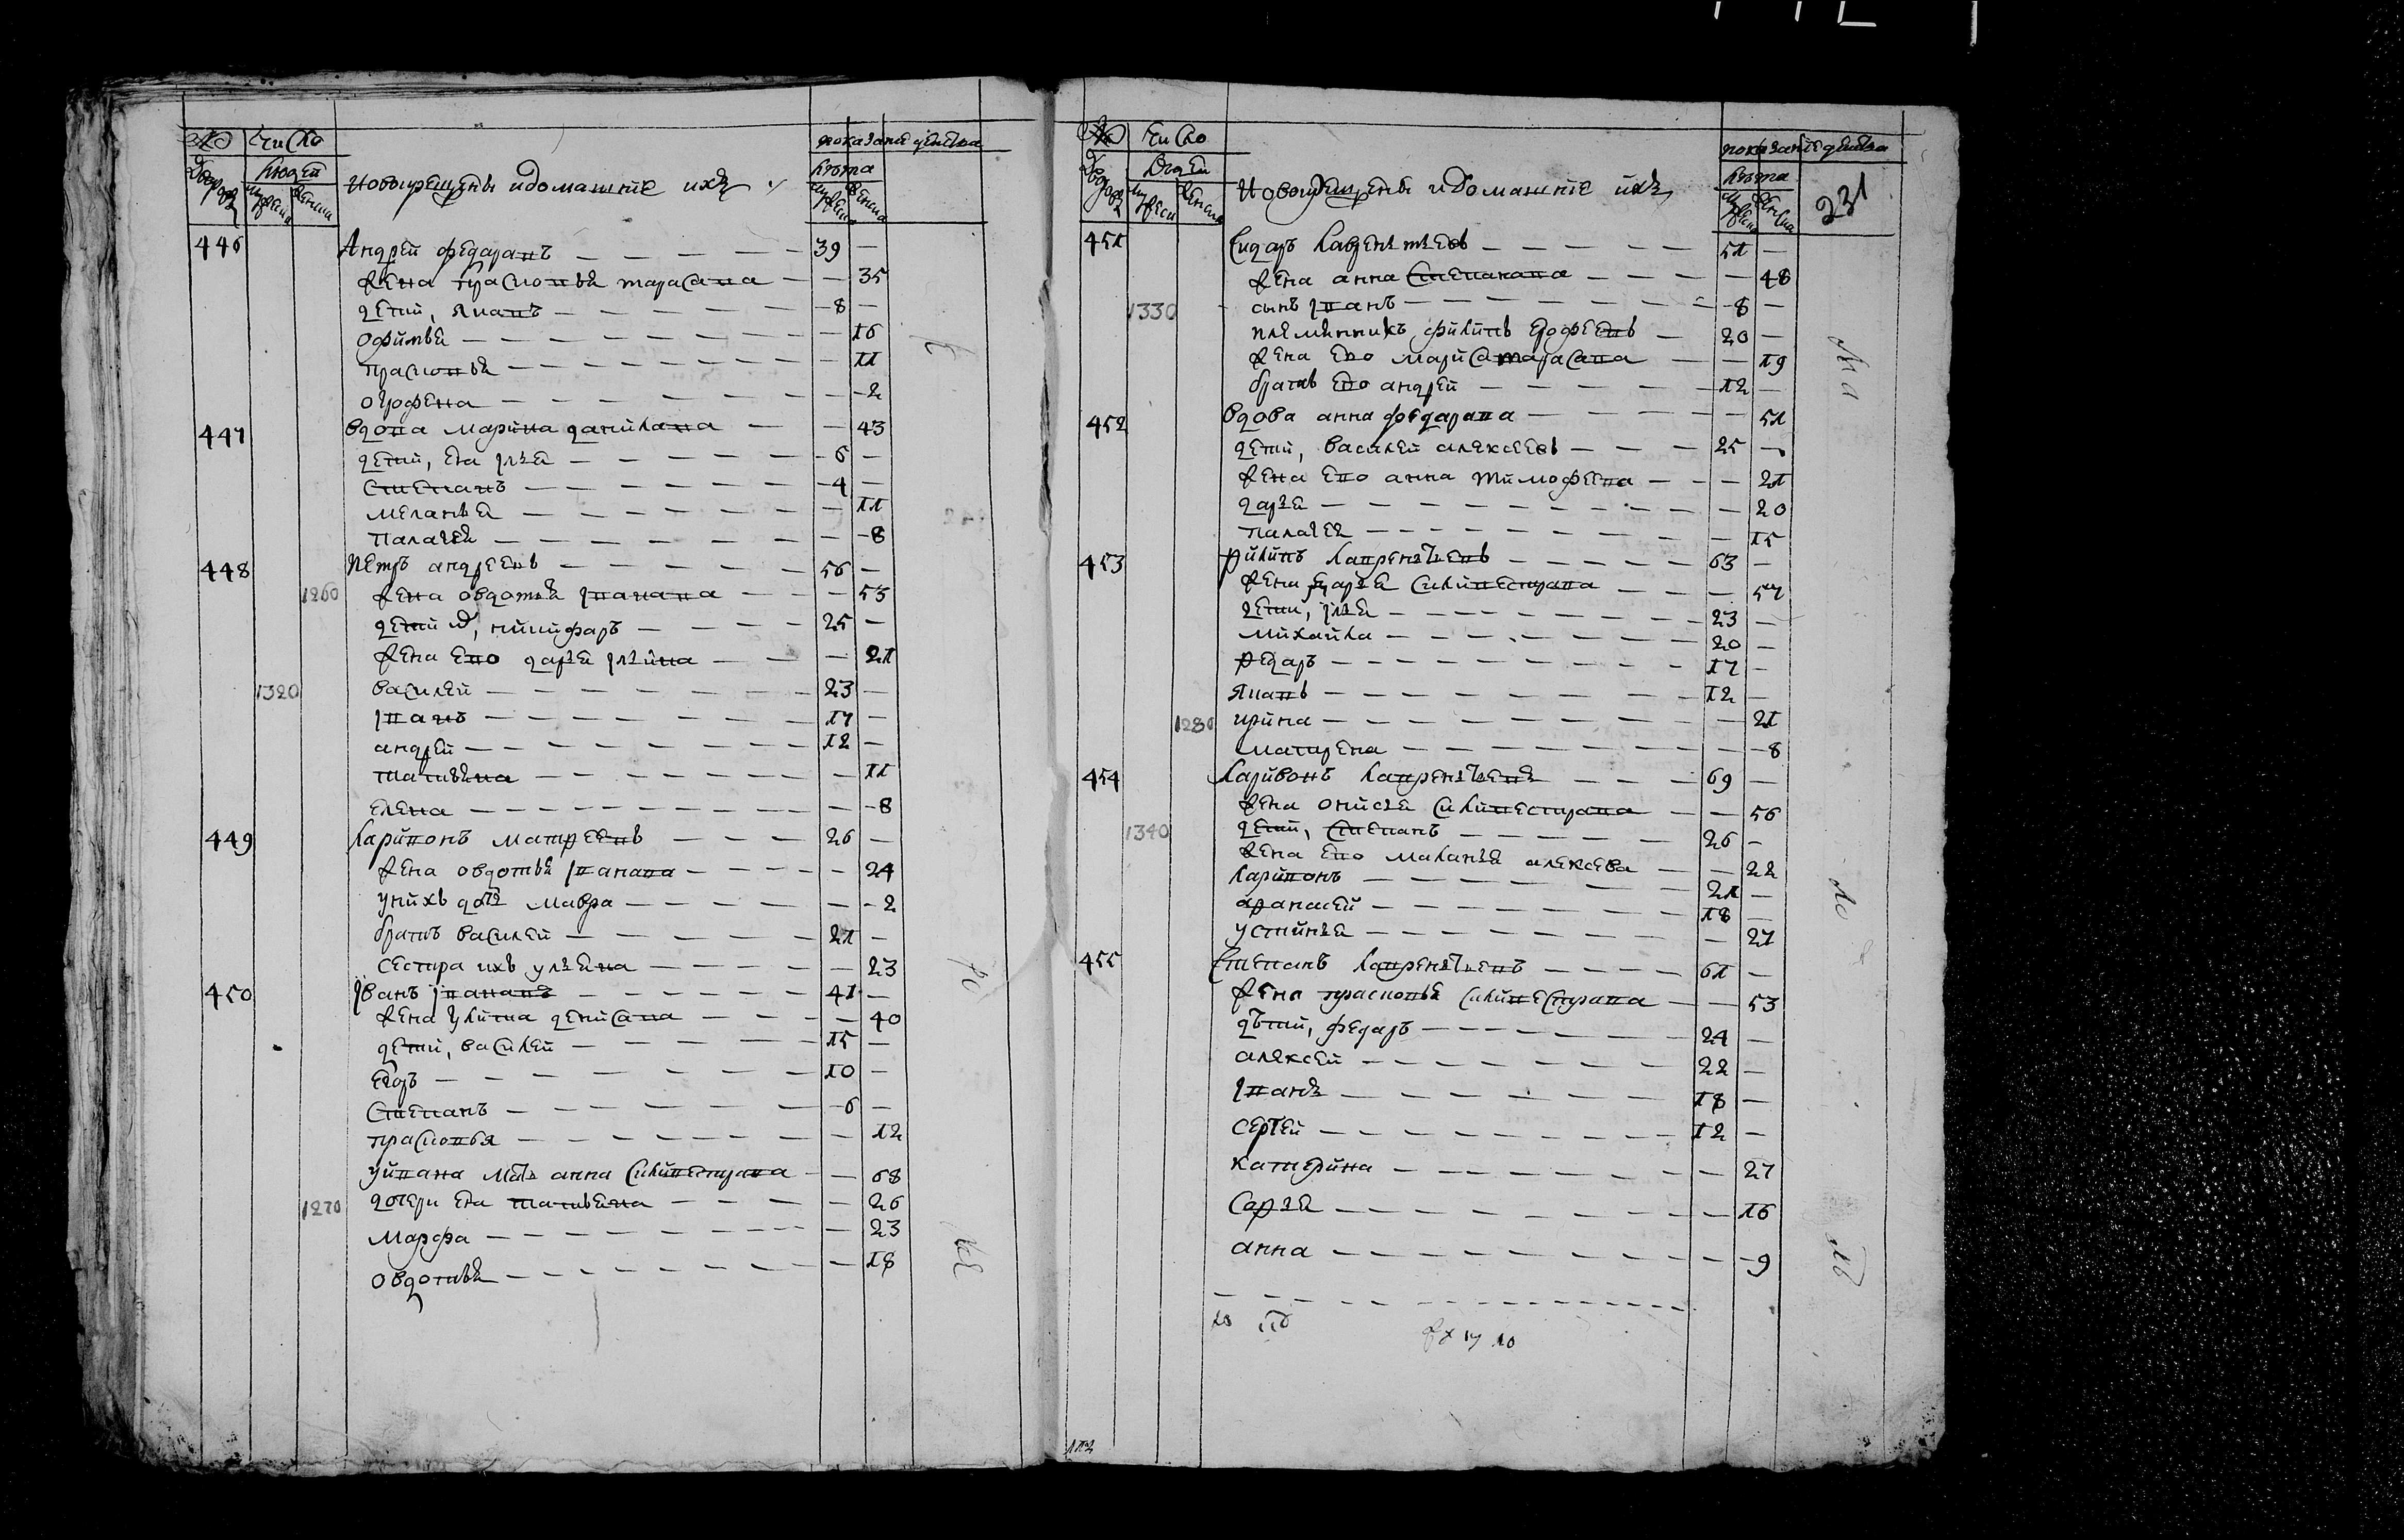 № число показание действа
дворовъ людей лѣта
мужеска женска Новокрещены и домашние ихъ мужеска женска
446 Андрей Федаравъ — 39 —
жена Прасковья Тарасава — — 35
дети, Яковъ — 8 —
Офимья — — 16
Прасковья — — 11
Огрофена — — 2
447 Вдова Марина Данилава — — 43
дети, ея Илья — 6 —
Степанъ — 4 —
Меланья — — 11
Палагея — — 8
448 Петръ Андреевъ — 56 —
1260 жена Овдотья Иванава — — 53
дети, Никифаръ — 25 —
жена ево Дарья Ильина — — 21
1320 Василей — 23 —
Иванъ — 17 —
Андрей — 12 —
Татьяна — — 11
Елена — — 8
449 Ларивонъ Матфеевъ — 26 —
жена Овдотья Иванава — — 24
у нихъ дочь Мавра — — 2
братъ Василей — 21 —
сестра ихъ Ульяна — — 23
450 Иванъ Ивановъ — 41 —
жена Улита Денисава — — 40
дети, Василей — 15 —
Егоръ — 10 —
Степанъ — 6 —
Прасковья — — 12
у Ивана мать Анна Силивестрава — — 68
1270 дочери ея Татьяна — — 26
Марфа — — 23
Овдотья — — 18
№ число показание действа
дворовъ людей лѣта
мужеска женска Новокрещены и домашние ихъ мужеска женска 231
451 Сидаръ Лаврентьевъ — 51 —
жена Анна Степанава — — 48
1330 сынъ Иванъ — 8 —
племянникъ Филипъ Ерофеевъ — 20 —
жена ево Марья Тарасава — — 19
братъ ево Андрей — 12 —
452 Вдова Анна Федарава — — 51
дети, Василей Алексеевъ — 25 —
жена ево Анна Тимофеева — — 21
Дарья — — 20
Палагея — — 15
453 Филипъ Лаврентьевъ — 63 —
жена Дарья Силивестрава — — 57
дети, Илья — 23 —
Михайла — 20 —
Федаръ — 17 —
Яковъ — 12 —
1280 Ирина — — 21
Матрена — — 8
454 Ларивонъ Лаврентьевъ — 69 —
жена Онисья Силивестрава — — 56
1340 дети, Степанъ — 26 —
жена ево Маланья Алексева — — 22
Ларивонъ — 21 —
Афанасей — 18 —
Устинья — — 27
455 Степанъ Лаврентьевъ — 61 —
жена Прасковья Силивестрава — — 53
дѣти, Федаръ — 24 —
Алексей — 22 —
Иванъ — 18 —
Сергей — 12 —
Катерина — — 27
Софья — — 16
Анна — — 9